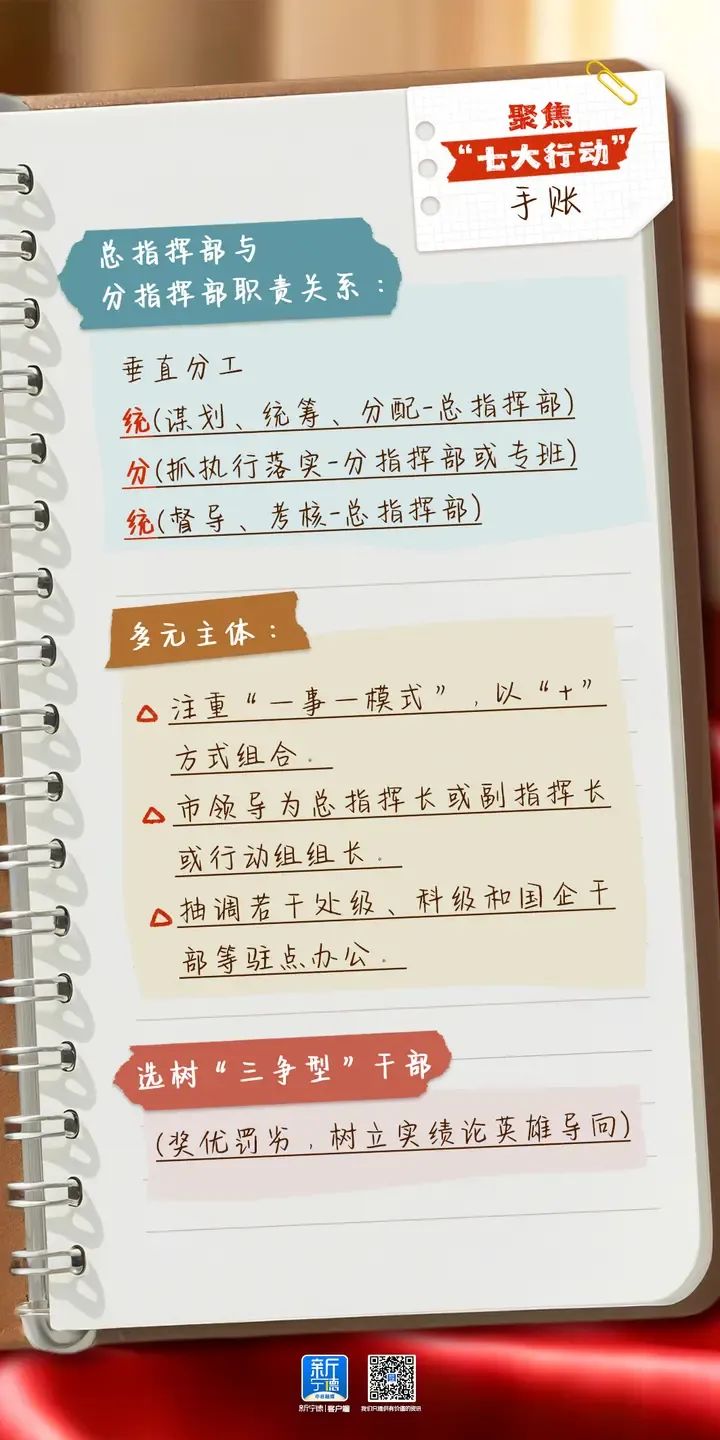 聚焦
“七大行动”
手账
总指挥部与
分指挥部职责关系：
垂直分工
统(谋划、统筹、分配-总指挥部)
分(抓执行落实-分指挥部或专班)
统(督导、考核-总指挥部)
多元主体：
注重“一事一模式”，以“+”
方式组合.
市领导为总指挥长或副指挥长
或行动组组长.
抽调若干处级、科级和国企干
部等驻点办公.
选树“三争型”干部
(奖优罚劣，树立实绩论英雄导向)
新
宁德
新宁德|客户端
我们只提供有价值的资讯